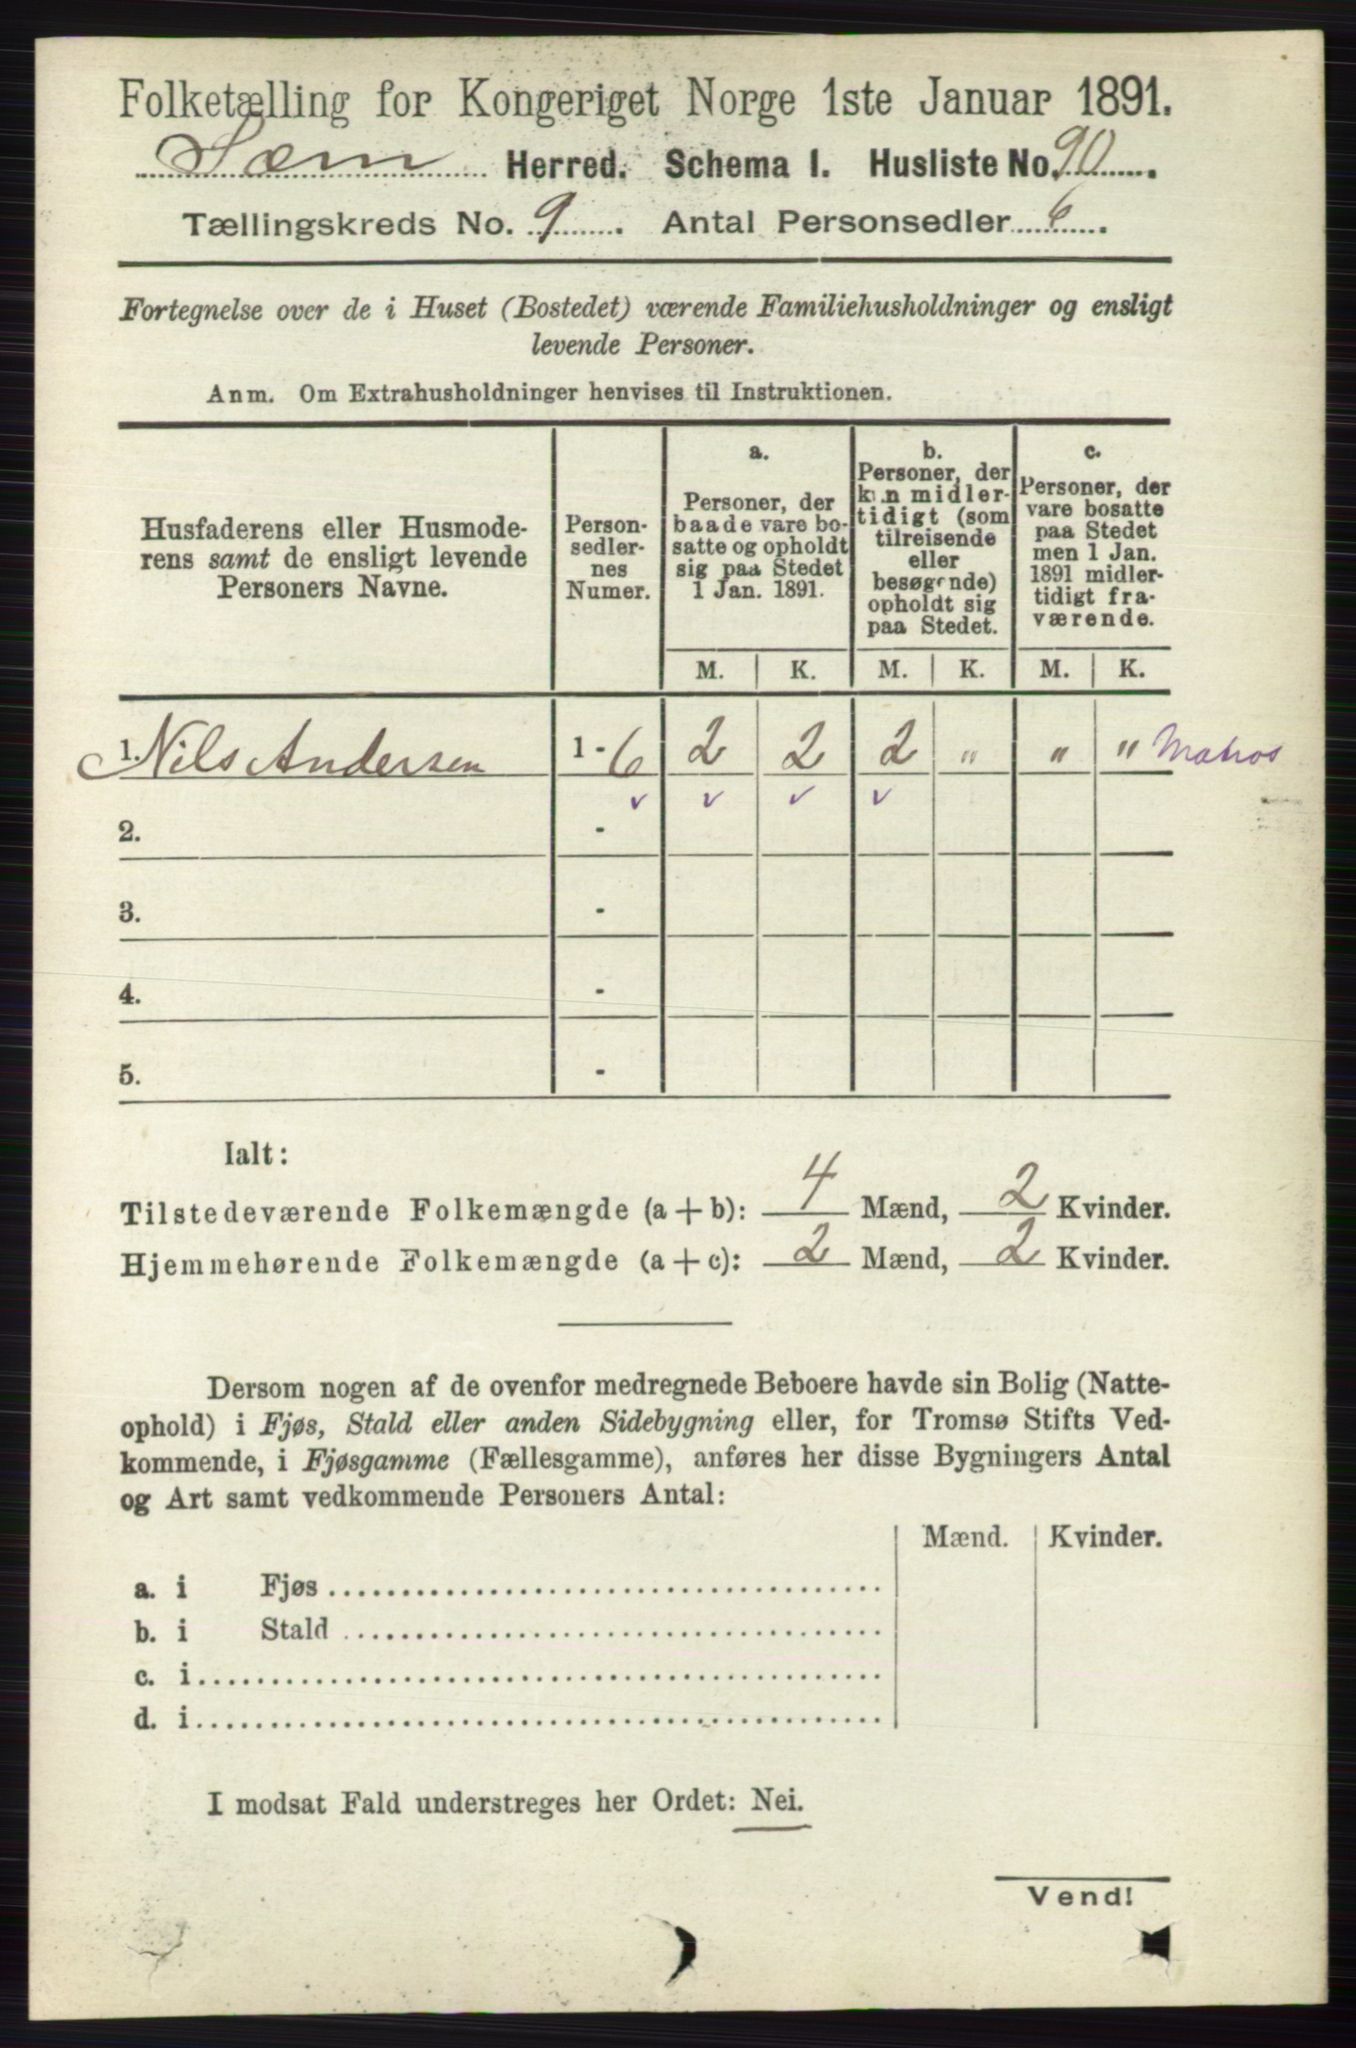 Folketælling for Kongeriget Norge 1ste Januar 1891.
Sæm Herred. Schema I. Husliste No. 90
Tællingskreds No. 9. Antal Personsedler 6.
Fortegnelse over de i Huset (Bostedet) værende Familiehusholdninger og ensligt
levende Personer.
Anm. Om Extrahusholdninger henvises til Instruktionen.
Husfaderens eller Husmode-
rens samt de ensligt levende
Personers Navne.
Person-
sedler-
nes
Numer.
a.
Personer, der
baade vare bo-
satte og opholdt
sig paa Stedet
1 Jan. 1891.
b.
Personer, der
kun midler-
tidigt (som
tilreisende
eller
besøgende)
opholdt sig
paa Stedet.
c.
Personer, der
vare bosatte
paa Stedet
men 1 Jan.
1891 midler-
tidigt fra-
værende.
M. K. M. K. M. K.
1. Nils Andersen 1 - 6 2 2 2 " " " Matros
2. -
3. -
4. -
5. -
Ialt:
Tilstedeværende Folkemængde (a + b): 4 Mænd, 2 Kvinder.
Hjemmehørende Folkemængde (a + c): 2 Mænd, 2 Kvinder.
Dersom nogen af de ovenfor medregnede Beboere havde sin Bolig (Natte-
ophold) i Fjøs, Stald eller anden Sidebygning eller, for Tromsø Stifts Ved-
kommende, i Fjøsgamme (Fællesgamme), anføres her disse Bygningers Antal
og Art samt vedkommende Personers Antal:
Mænd. Kvinder.
a. i Fjøs
b. i Stald
c. i
d. i
I modsat Fald understreges her Ordet: Nei.
Vend!